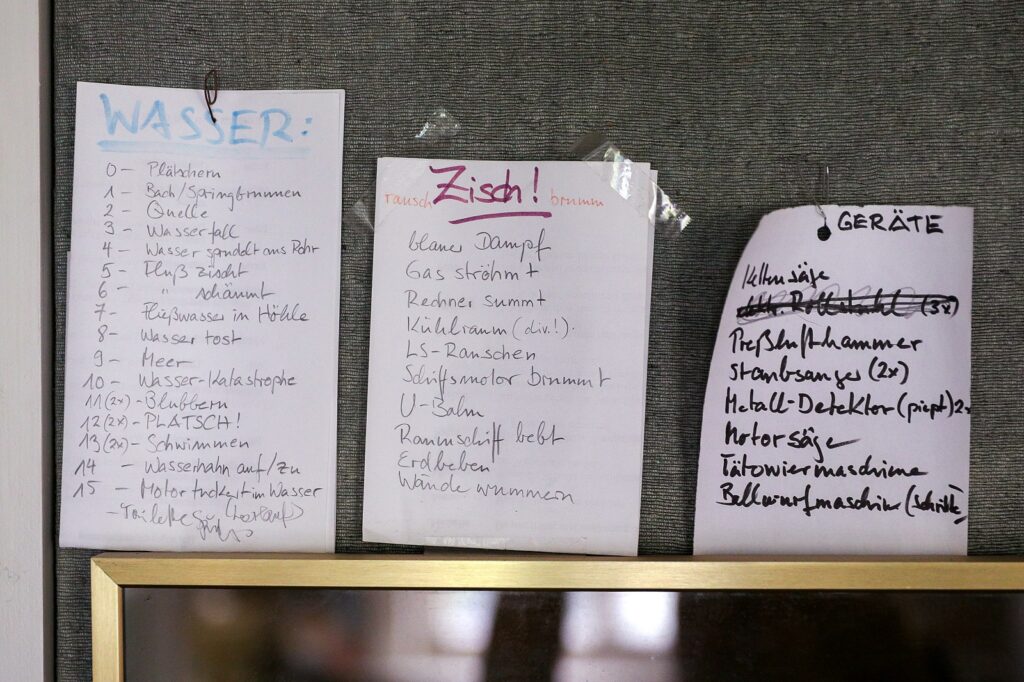 WASSER:
0 - Plätschern
1 - Bach/Springbrunnen
2 - Quelle
3 - Wasserfall
4 - Wasser sprudelt aus Rohr
5 - Fluß zischt
6 - " schäumt
7 - Fließwasser in Höhle
8 - Wasser tost
9 - Meer
10 - Wasser-Katastrophe
11 (2x) - Blubbern
12 (2x) - PLATSCH!
13 (2x) - Schwimmen
14 - Wasserhahn auf/zu
15 - Motor tuckert im Wasser
- Toilette
Zisch!
rausch brumm
blauer Dampf
Gas ströhmt
Rechner summt
Kühlraum (div.!).
LS-Rauschen
Schiffsmotor brummt
U-Bahn
Raumschiff bebt
Erdbeben
Wände wummern
GERÄTE
Kettensäge
elektr. Rollstuhl (3x)
Preßlufthammer
Staubsauger (2x)
Metall-Detektor (piept) 2x
Motorsäge
Tätowiermaschine
Ballwurfmaschine